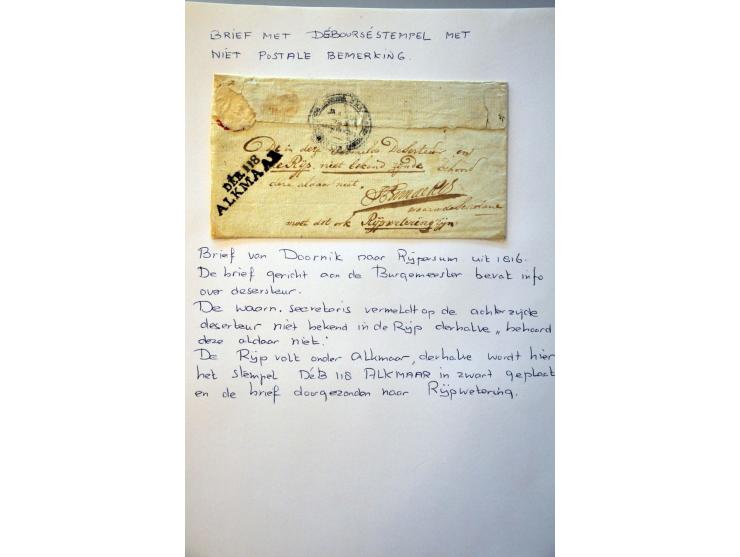 BRIEF MET DÉBOURSÉSTEMPEL MET
NIET POSTALE BEMERKING.
DÉB. 118
ALKMAAR
De in deze Deserteur en
de Rijp niet bekend zijnde behoord
deze aldaar niet.
moet dit ook Rijpwetering zijn
Brief van Doornik naar Rijpersum uit 1816.
De brief gericht aan de Burgemeester bevat info
over deserteur.
De waarn. secretaris vermeldt op de achterzijde
deserteur niet bekend in de Rijp derhalve „behoord
deze aldaar niet."
De Rijp valt onder Alkmaar, derhalve wordt hier
het stempel DéB 118 ALKMAAR in zwart geplaatst
en de brief doorgezonden naar Rijpwetering.